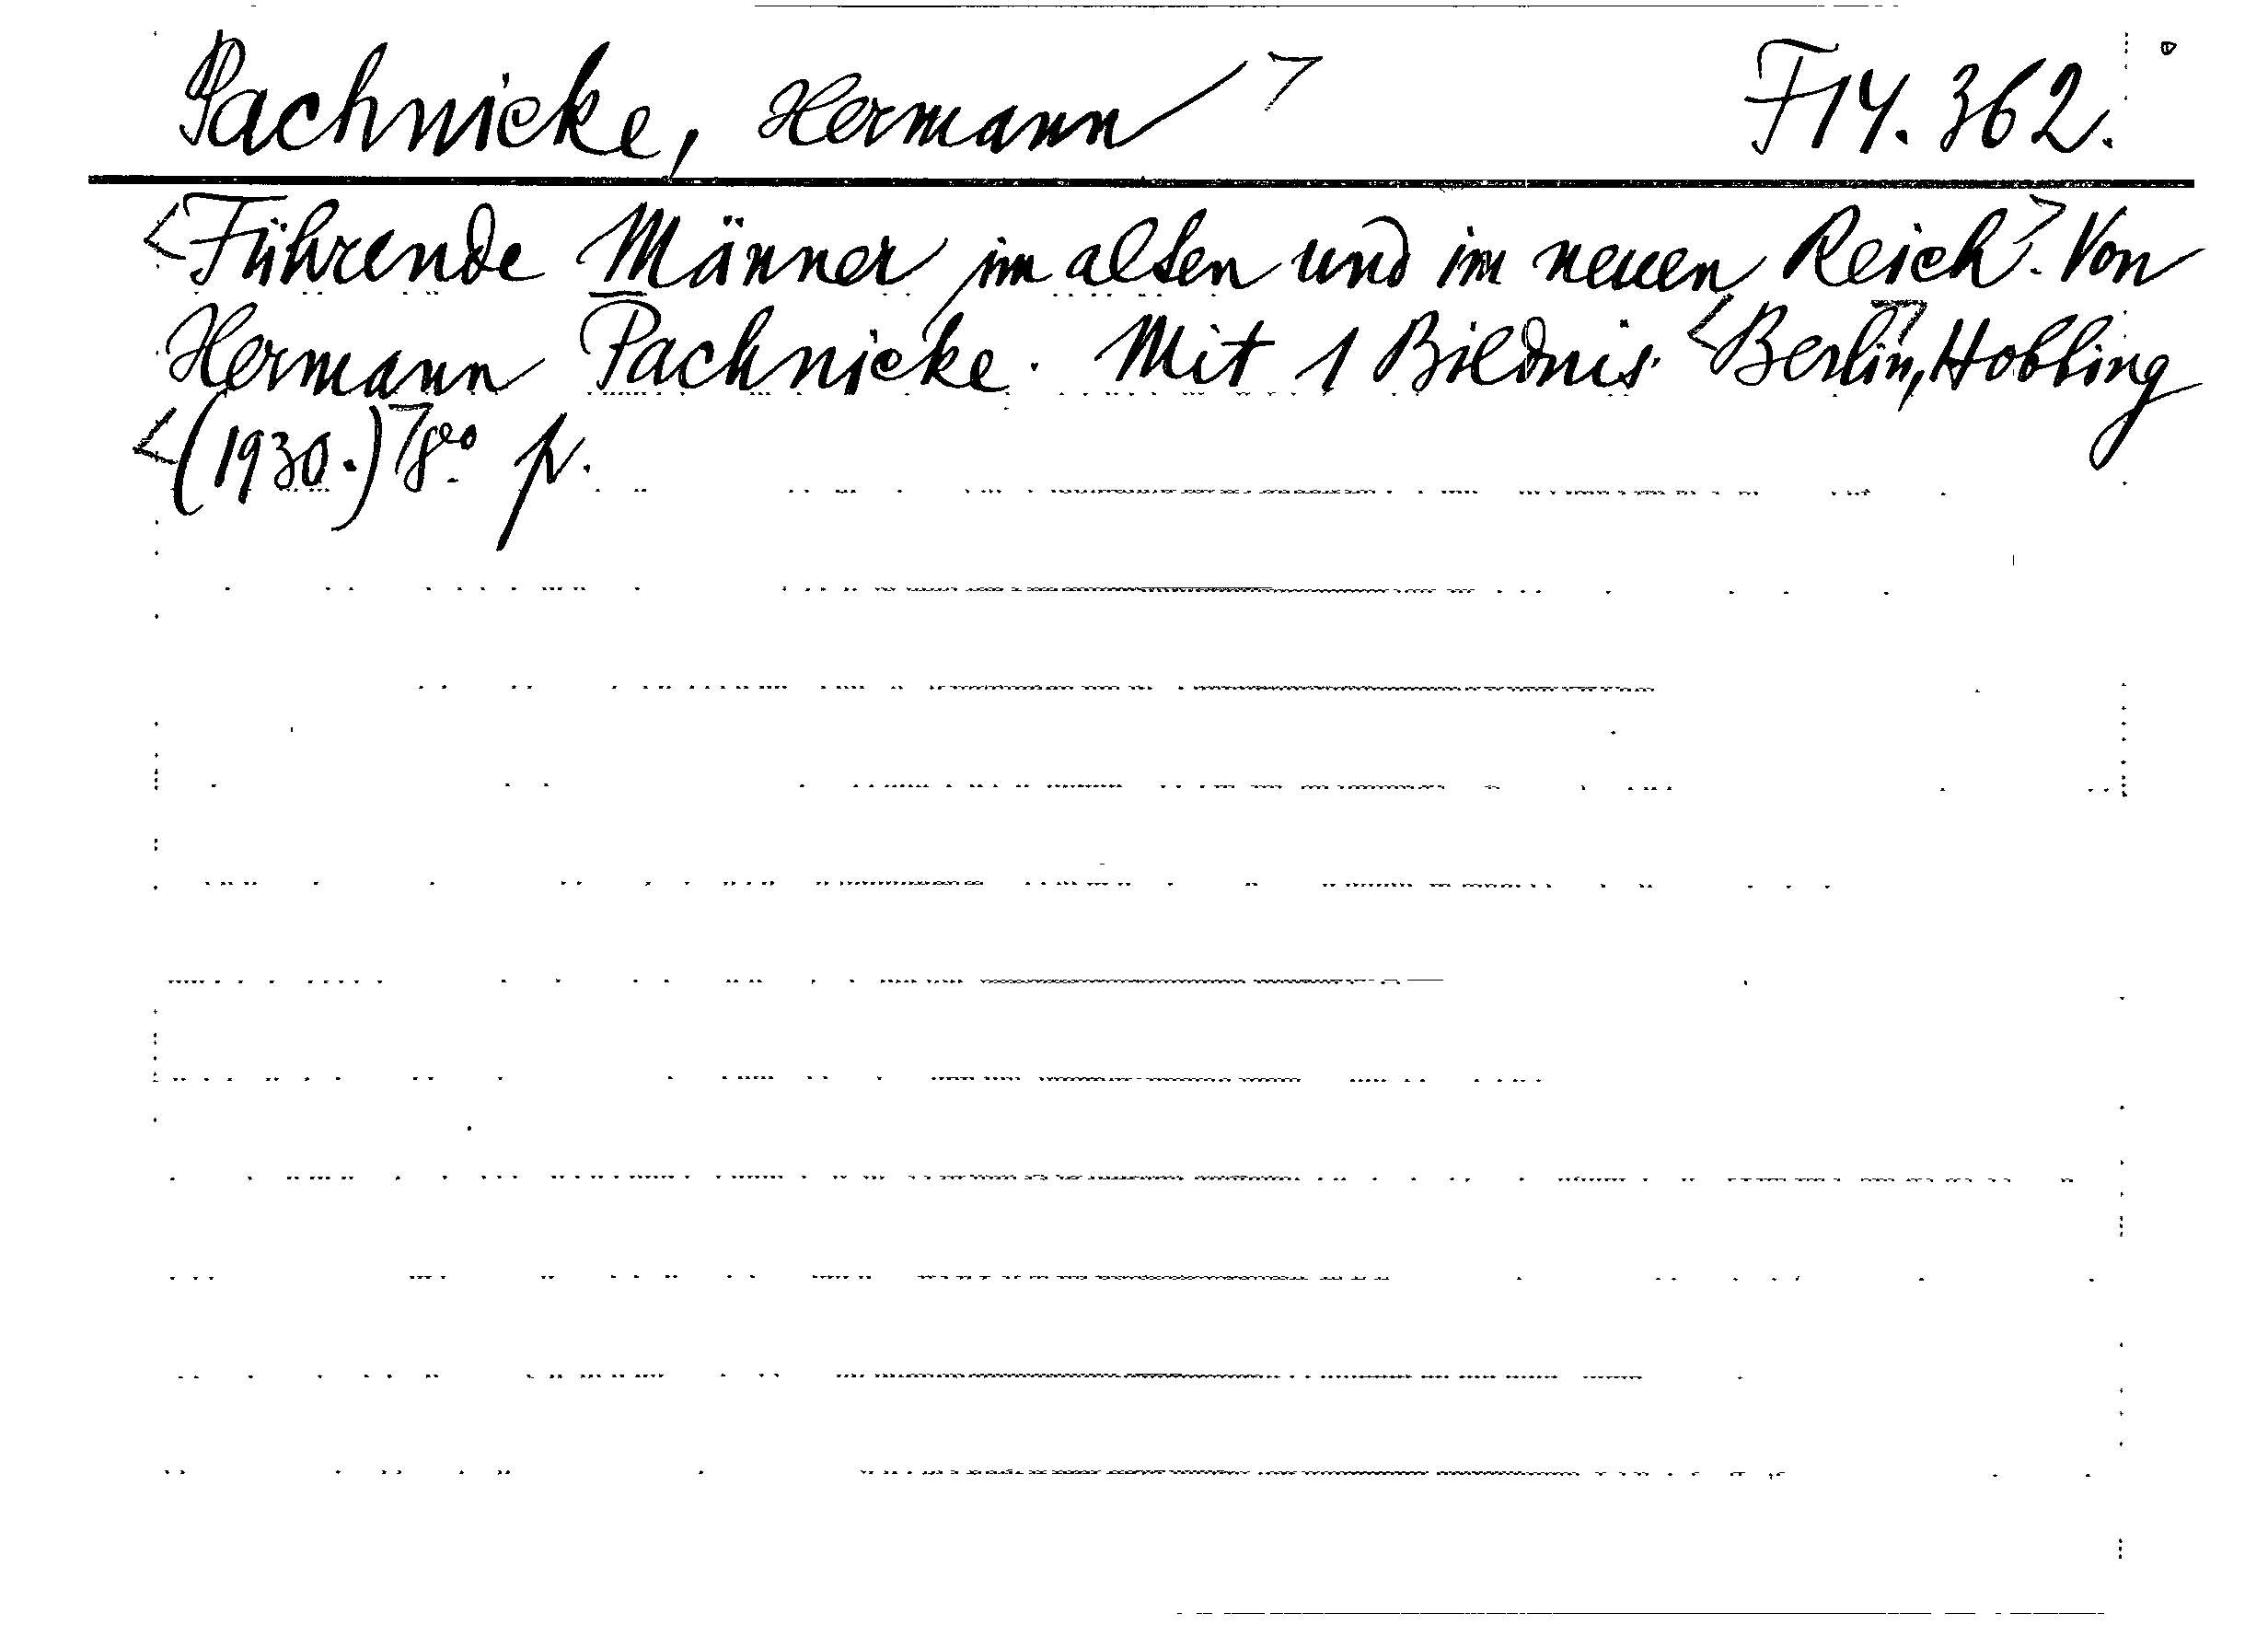 Pachnicke, Hermann> F 14. 362.
<Führende Männer im alten und im neuen Reich>. Von
Hermann Pachnicke. Mit 1 Bildnis. <Berlin>, Hobbing
<(1930.)> 8eo p.